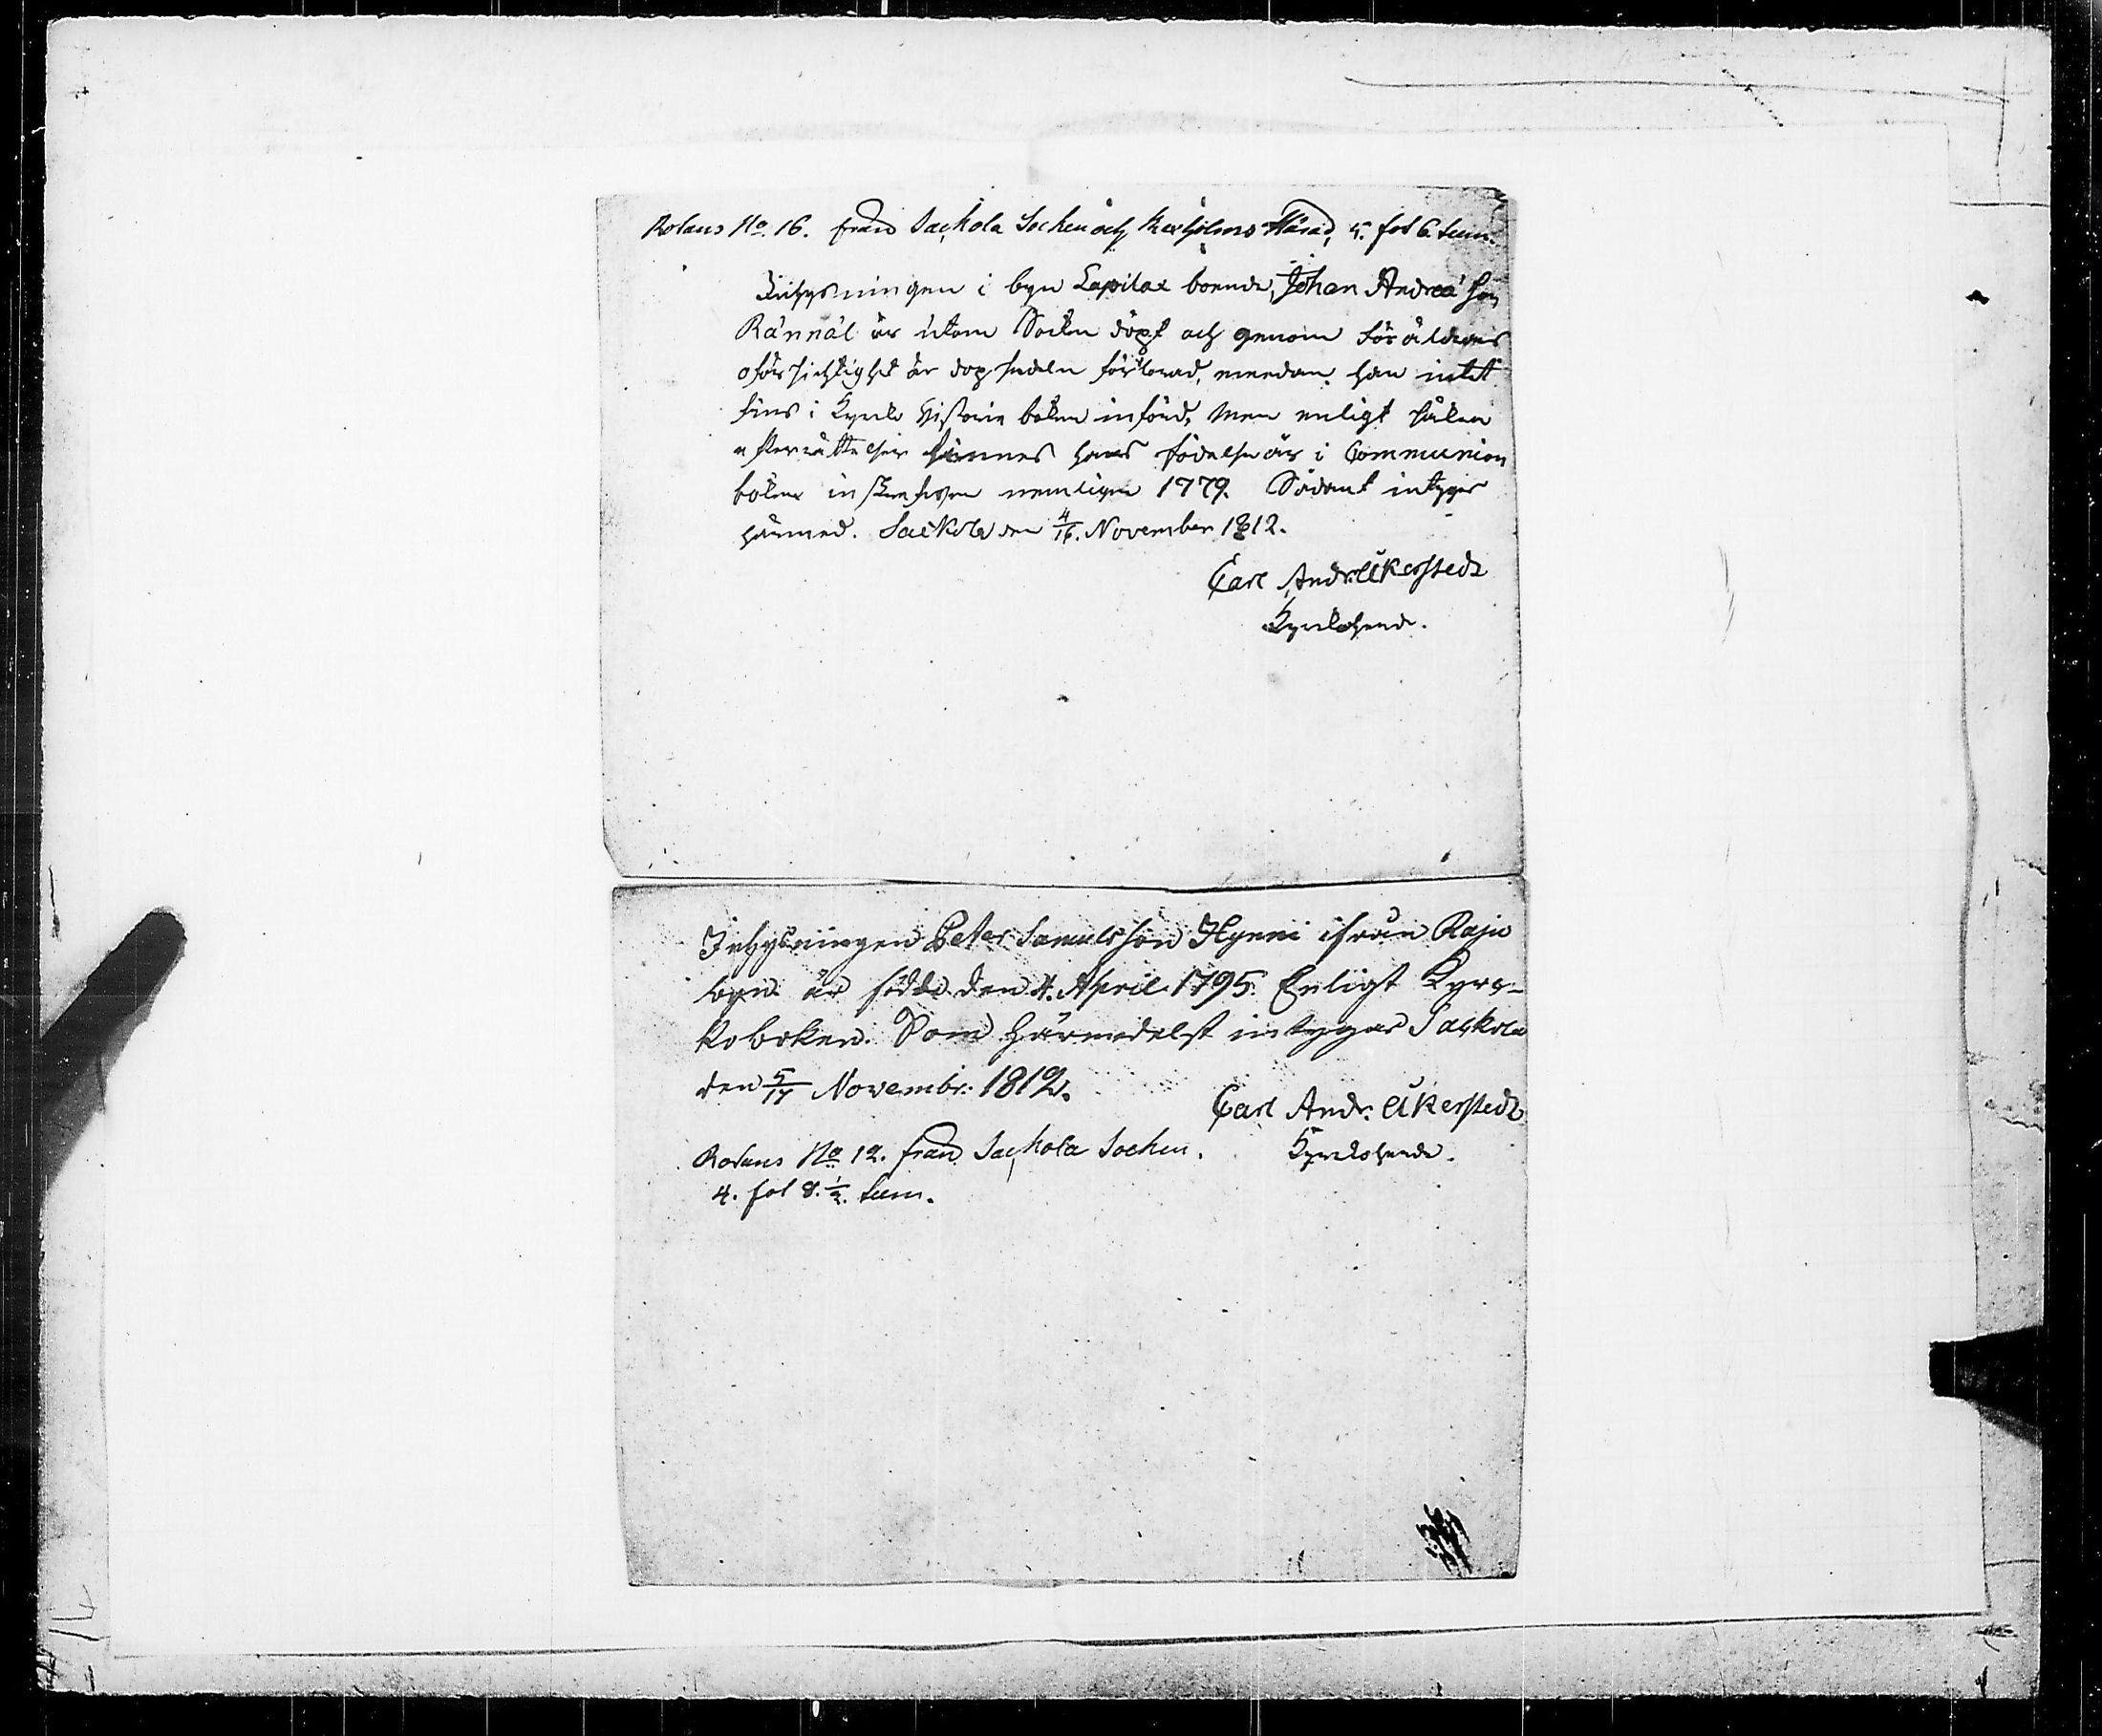 Rotans No. 16. från Sackola Socken och Kexholms Härad, 5. fot 6. tum.
Inhysningen i byn Lapilax boende, Johan Andreæ Son
Rännäl är utom Socken döpt och genom föräldrars
oförsichtighet är dopsedeln förlorad, emedan han intet
fins i Kyrko Historie boken införd, Men enligt säkra
efterrättelser finnes hans födelse år i Communion
boken inskrefven nemligen 1779. Sådant intygar
härmed. Sackola den 4/16. November 1812.
Carl Andr: Åkerstedt
Kyrkoherde.
Inhysningen Peter Samuelsson Hynni ifrån Raju
byn är född den 4. April 1795. Enligt Kyrc-
koboken. Som härmedelst intygar Sackola
den 5/17 Novembr: 1812.
Carl Andr: Åkerstedt
Kyrkoherde.
Rotans No 12. från Sackola Socken.
4. fot 8. 1/2. tum.